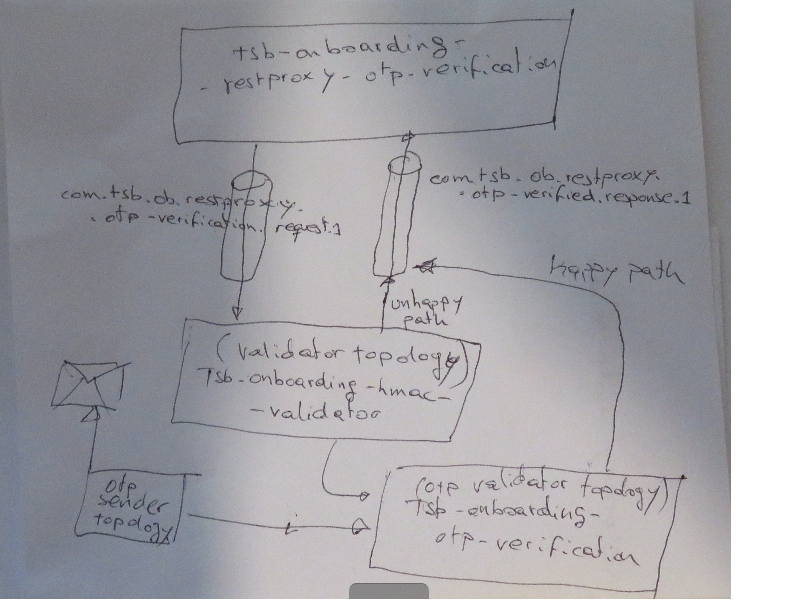 tsb-onboarding-
- restproxy - otp-verification
com.tsb.ob.restproxy.
. otp-verification. request.1
com.tsb. ob. restproxy.
. otp-verified.response.1
happy path
unhappy
path
(validator topology)
Tsb-onboarding-hmac-
-validator
otp
sender
topology
(otp validator topology)
Tsb-onboarding-
otp-verification